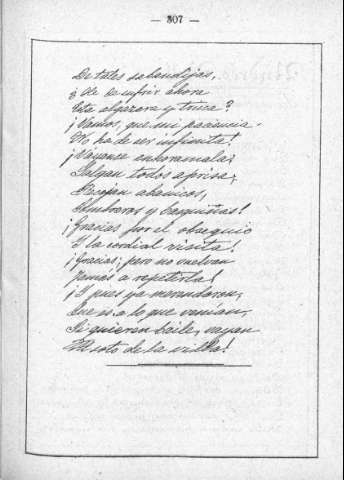 — 307 —
De tales sabandijas,
¿He de sufrir ahora
Esta algazara y trisca?
¡Vamos, que mi paciencia
No ha de ser infinita!
¡Váyanse enhoramala;
Salgan todos aprisa;
Recojan abanicos,
Sombreros y basquiñas!
¡Gracias por el obsequio
Y la cordial visita!
¡Gracias; pero no vuelvan
Jamás á repetirla!
¡Y pues ya merendaron,
Que es á lo que venían,
Si quieren baile, vayan
Al soto de la villa!